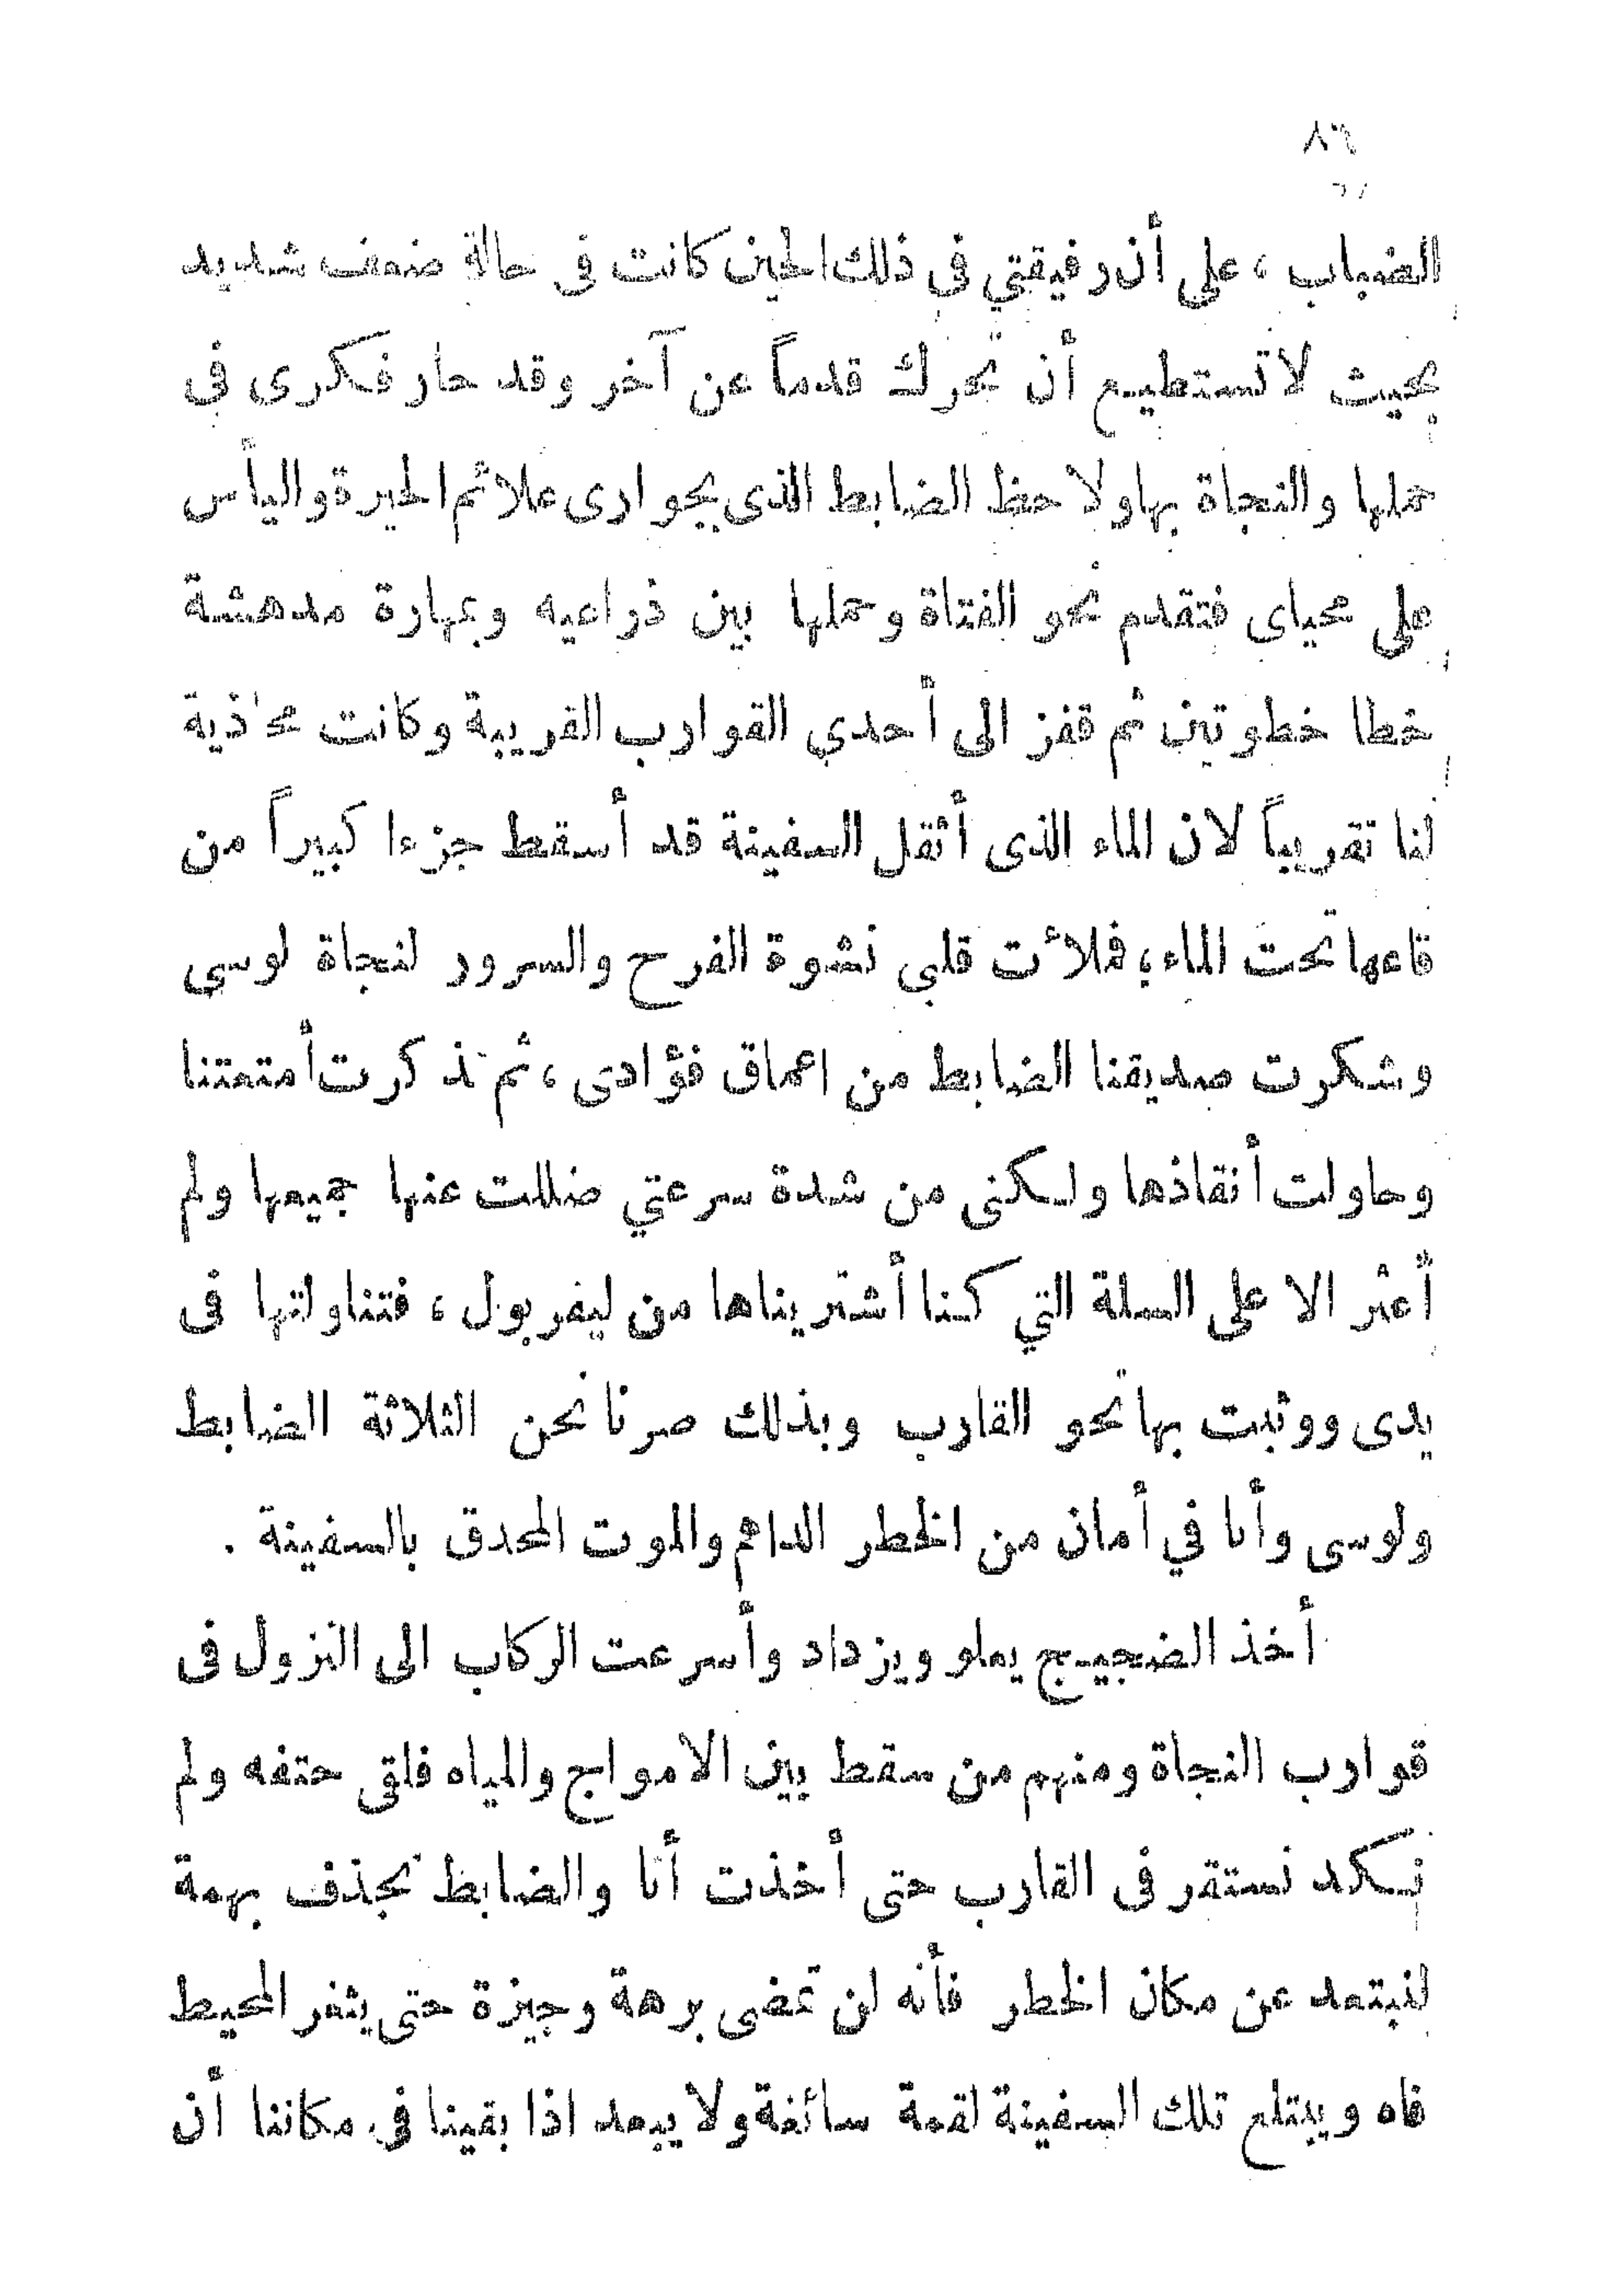 ٨٦
الضباب ، على أن رفيقتي فى ذلك الحين كانت فى حالة ضعف شديد
بحيث لا تستطيع أن تحرك قدماً عن آخر وقد حار فكرى فى
حملها والنجاة بها ولاحظ الضابط الذى بجوارى علائم الحيرة واليأس
على محياى فتقدم نحو الفتاة وحملها بين ذراعيه وبمهارة مدهشة
خطا خطوتين ثم قفز الى أحدي القوارب القريبة وكانت محاذية
لنا تقريباً لان الماء الذى أثقل السفينة قد أسقط جزءا كبيراً من
قاعها تحت الماء ، فملأت قلبى نشوة الفرح والسرور لنجاة لوسى
وشكرت صديقنا الضابط من اعماق فؤادى ، ثم تذكرت أمتعتنا
وحاولت أنقاذها ولكنى من شدة سرعتي ضللت عنها جميعها ولم
أعثر الا على السلة التي كنا أشتريناها من ليفربول ، فتناولتها فى
يدى ووثبت بها نحو القارب وبذلك صرنا نحن الثلاثة الضابط
ولوسى وأنا في أمان من الخطر الداهم والموت المحدق بالسفينة .
أخذ الضجيج يعلو ويزداد وأسرعت الركاب الى النزول فى
قوارب النجاة ومنهم من سقط بين الامواج والمياه فلقى حتفه ولم
نكد نستقر فى القارب حتى أخذت أنا والضابط نجذف بهمة
لنبتعد عن مكان الخطر فأنه لن تمضى برهة وجيزة حتى يثغر المحيط
فاه ويبتلع تلك السفينة لقمة سائغة ولا يبعد اذا بقينا فى مكاننا أن